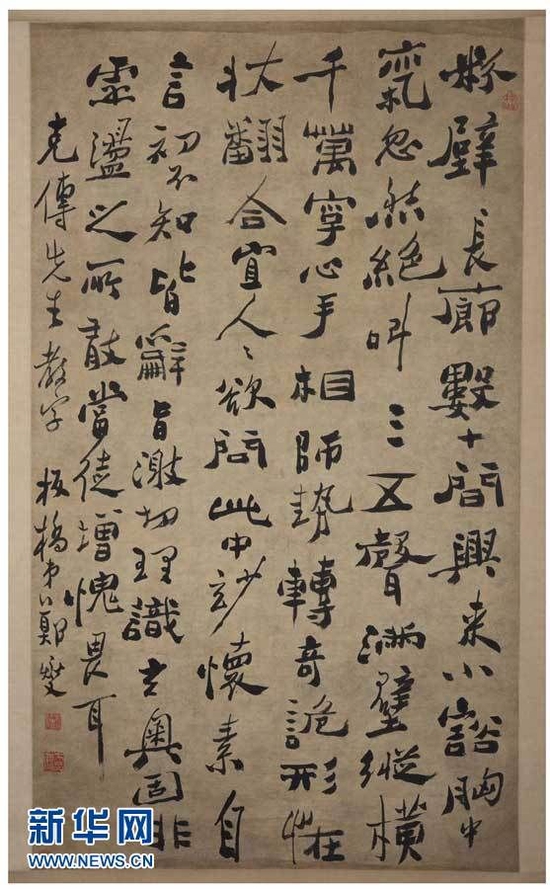 粉壁長廊數十間興来小豁胸中
氣忽然絕叫三五聲滿壁縱橫
千萬字心手相師勢轉奇詭形恠
狀翻合宜人〻欲問此中妙懷素自
言初不知皆辭旨激切理識玄奧固非
虛蕩之所敢當徒增愧畏耳
克傳先生教字 板橋弟鄭燮
新华网
WWW.NEWS.CN